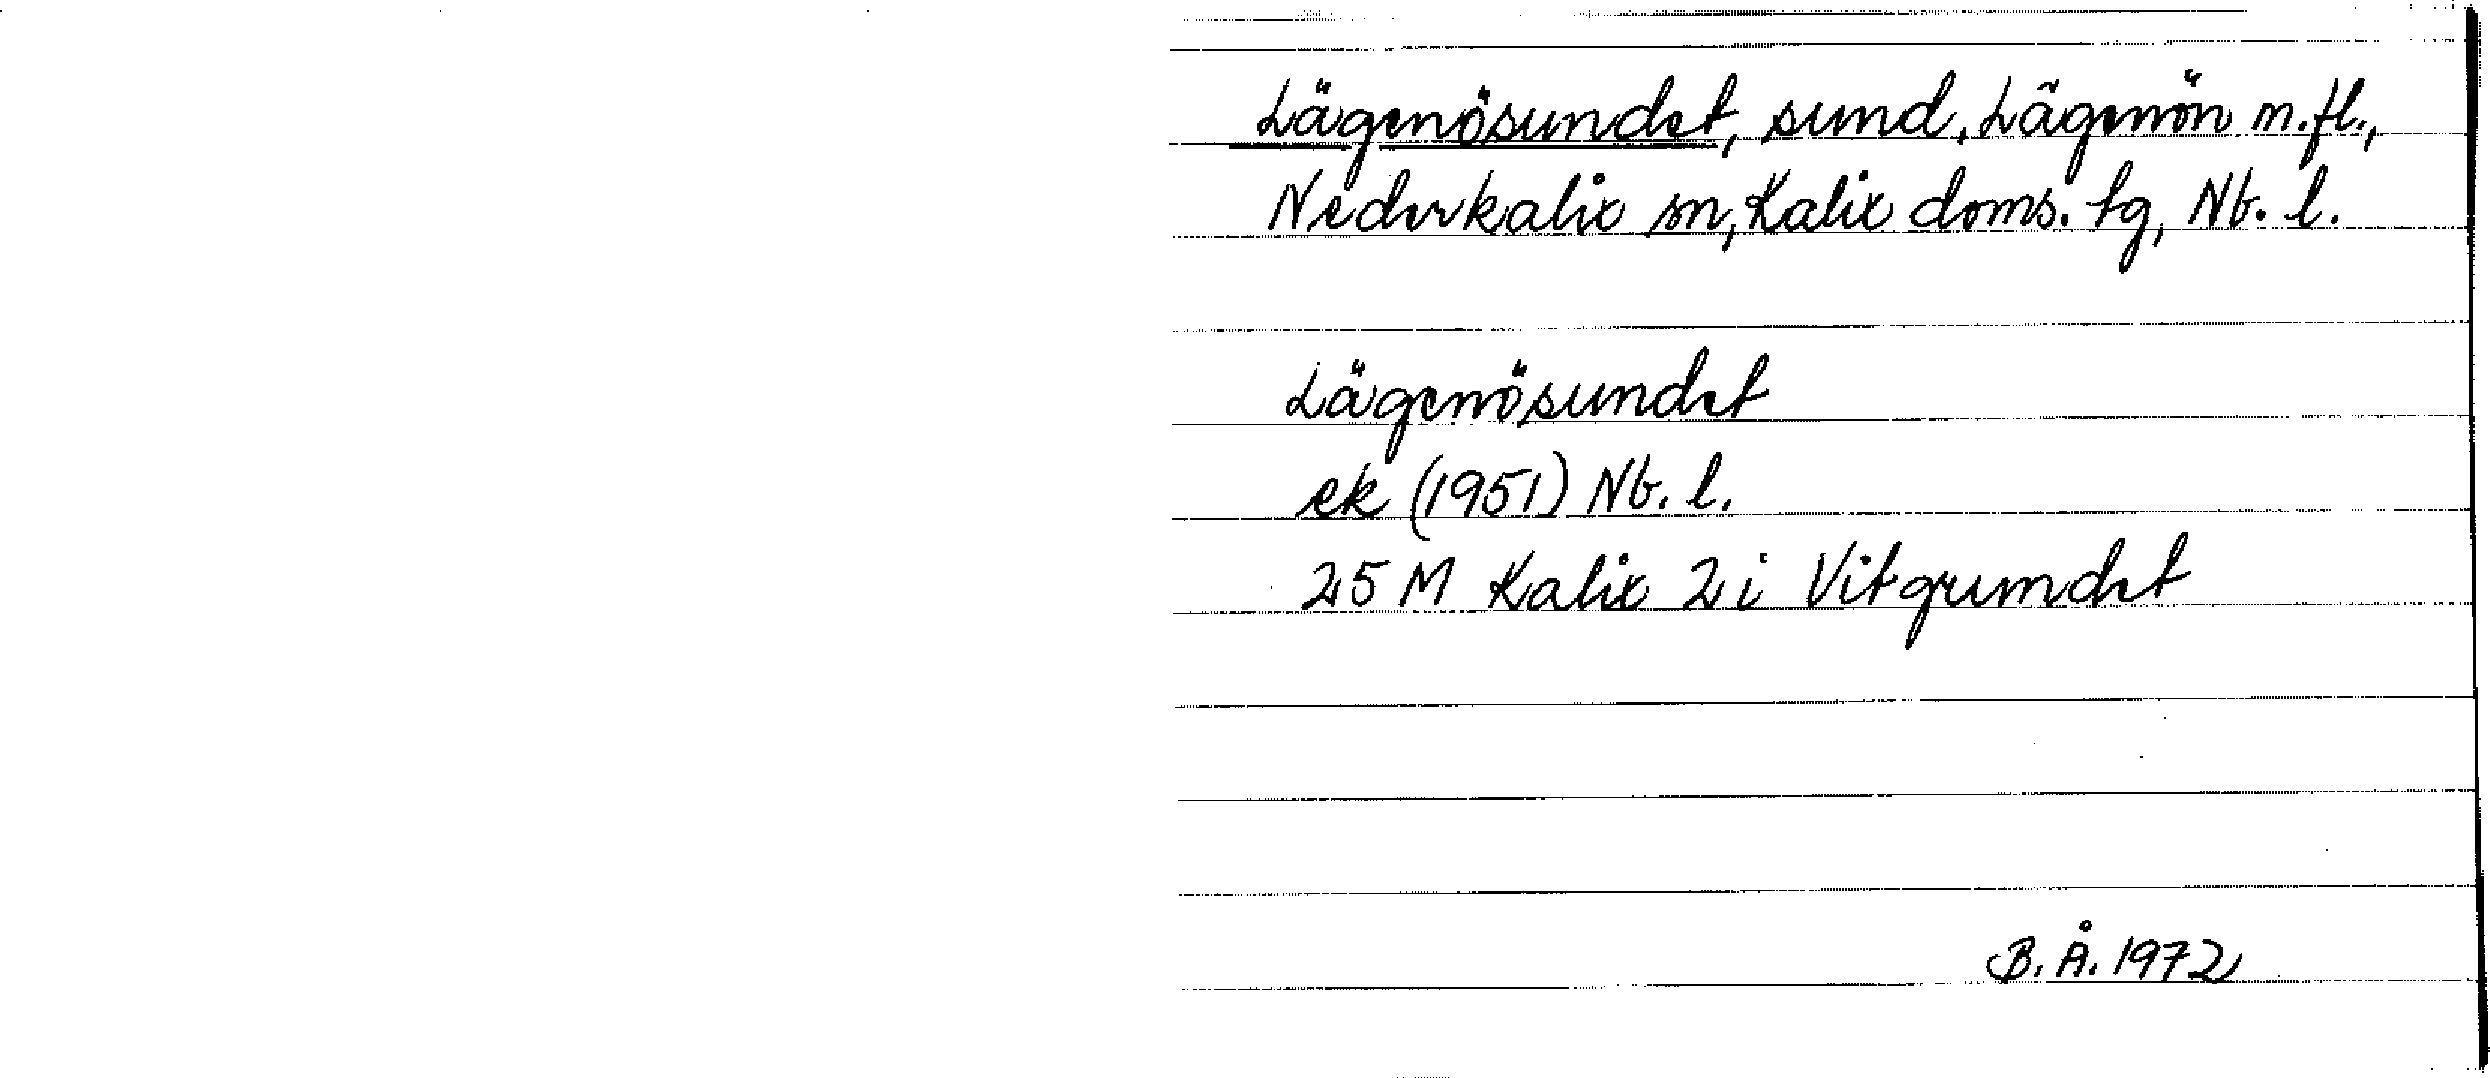 Lägenösundet, sund, Lägenön m.fl.,
Nederkalix sn, Kalix doms. tg, Nb. l.
Lägenösundet
ek (1951) Nb. l.
25 M Kalix 2 i Vitgrundet
B. Å. 1972